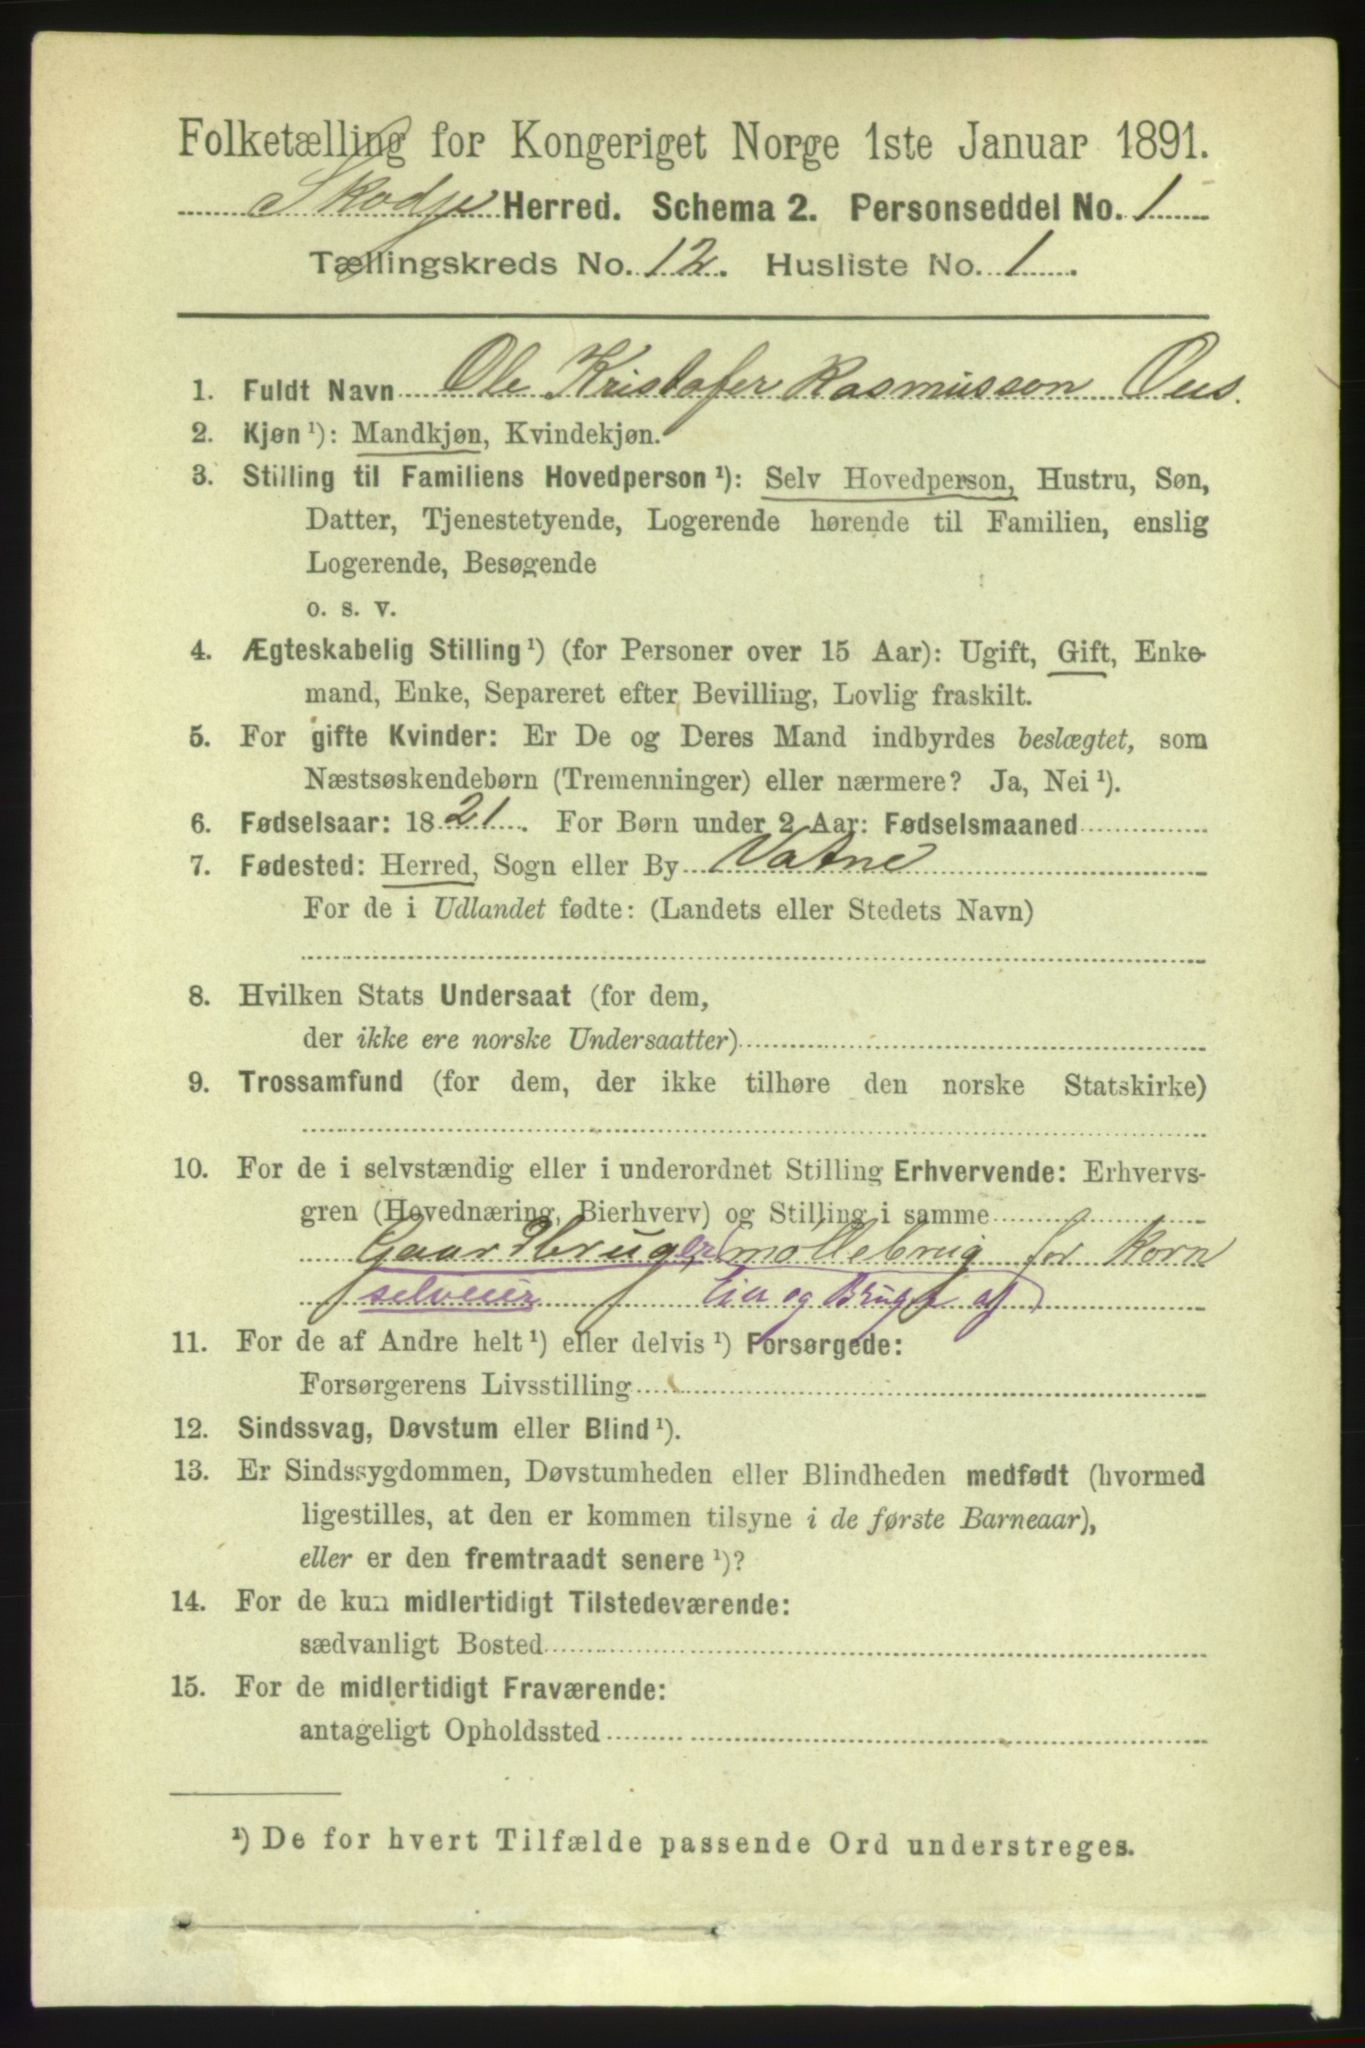 Folketælling for Kongeriget Norge 1ste Januar 1891.
Skodje Herred. Schema 2. Personseddel No. 1
Tællingskreds No. 12. Husliste No. 1.
1. Fuldt Navn Ole Kristofer Rasmusson Ous.
2. Kjøn ¹): Mandkjøn, Kvindekjøn.
3. Stilling til Familiens Hovedperson ¹): Selv Hovedperson, Hustru, Søn,
Datter, Tjenestetyende, Logerende hørende til Familien, enslig
Logerende, Besøgende
o. s. v.
4. Ægteskabelig Stilling ¹) (for Personer over 15 Aar): Ugift, Gift, Enke-
mand, Enke, Separeret efter Bevilling, Lovlig fraskilt.
5. For gifte Kvinder: Er De og Deres Mand indbyrdes beslægtet, som
Næstsøskendebørn (Tremenninger) eller nærmere? Ja, Nei ¹).
6. Fødselsaar: 1821. For Børn under 2 Aar: Fødselsmaaned
7. Fødested: Herred, Sogn eller By Vatne
For de i Udlandet fødte: (Landets eller Stedets Navn)
8. Hvilken Stats Undersaat (for dem,
der ikke ere norske Undersaatter)
9. Trossamfund (for dem, der ikke tilhøre den norske Statskirke)
10. For de i selvstændig eller i underordnet Stilling Erhvervende: Erhvervs-
gren (Hovednæring, Bierhverv) og Stilling i samme
Gaardbruger (møllebrug for Korn
selveier Eier og Bruger af)
11. For de af Andre helt ¹) eller delvis ¹) Forsørgede:
Forsørgerens Livsstilling
12. Sindssvag, Døvstum eller Blind ¹).
13. Er Sindssygdommen, Døvstumheden eller Blindheden medfødt (hvormed
ligestilles, at den er kommen tilsyne i de første Barneaar),
eller er den fremtraadt senere ¹)?
14. For de kun midlertidigt Tilstedeværende:
sædvanligt Bosted
15. For de midlertidigt Fraværende:
antageligt Opholdssted
¹) De for hvert Tilfælde passende Ord understreges.